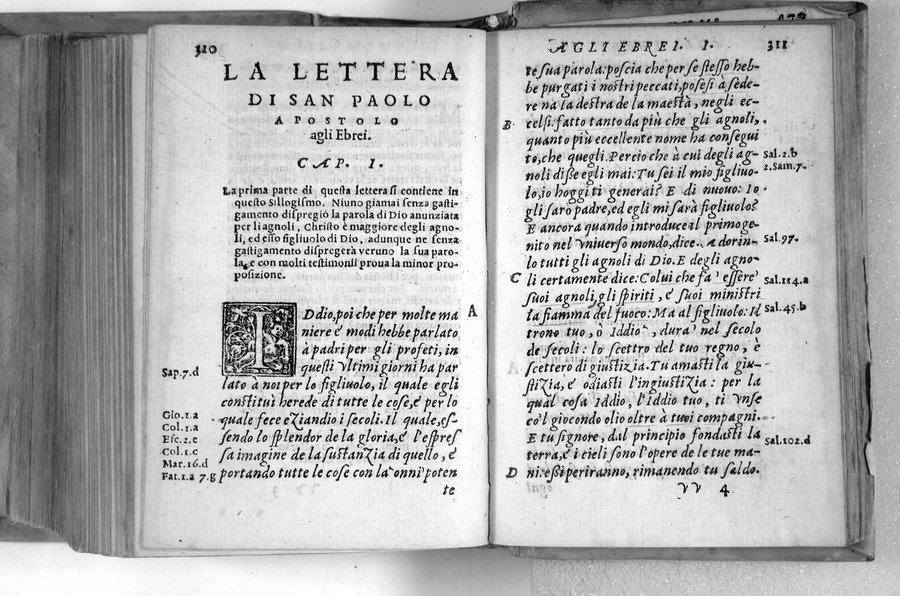 310
LA LETTERA
DI SAN PAOLO
APOSTOLO
agli Ebrei.
CAP. I.
La prima parte di questa lettera si contiene in
questo Sillogismo. Niuno giamai senza gasti-
gamento dispregiò la parola di Dio anunziata
per li agnoli, Christo è maggiore degli agno-
li, ed esso figliuolo di Dio, adunque ne senza
gastigamento dispregerà veruno la sua paro-
la, e con molti testimonii proua la minor pro-
posizione.
IDdio, poi che per molte ma A
niere è modi hebbe parlato
à padri per gli profeti, in
questi vltimi giorni ha par Sap.7.d
lato à noi per lo figliuolo, il quale egli
constituì herede di tutte le cose, e per lo Gio.1.a
quale fece eziandio i secoli. Il quale, es- Col.1.a
sendo lo splendor de la gloria, e l'espres Efe.2.e
sa imagine de la sustanzia di quello, e Col.1.c
Mar.16.d
portando tutte le cose con la onnipoten Fat.1.a 7.g
te
AGLI EBREI. I. 311
te sua parola: poscia che per se stesso heb-
be purgati i nostri peccati, posesi à sede-
re na la destra de la maestà, negli ec-
celsi: fatto tanto da più che gli agnoli, B
quanto più eccellente nome ha consegui
to, che quegli. Percio che à cui degli ag- Sal.2.b
noli disse egli mai: Tu sei il mio figliuo- 2.Sam.7.
lo, io hoggi ti generai? E di nuouo: Io
gli sarò padre, ed egli mi sarà figliuolo?
E ancora quando introduce il primoge-
nito nel vniuerso mondo, dice. Adorin- Sal.97.
lo tutti gli agnoli di Dio. E degli agno-
li certamente dice: Colui che fa' essere C
suoi agnoli, gli spiriti, e suoi ministri Sal.114.a
la fiamma del fuoco: Ma al figliuolo: Il Sal.45.b
trono tuo, ò Iddio, dura' nel secolo
de secoli: lo scettro del tuo regno, è
scettero di giustizia. Tu amasti la giu-
stizia, e odiasti l'ingiustizia: per la
qual cosa Iddio, l'Iddio tuo, ti vnse
co'l giocondo olio oltre à tuoi compagni.
E tu signore, dal principio fondasti la Sal.102.d
terra, e i cieli sono l'opere de le tue ma-
ni: essi periranno, rimanendo tu saldo. D
VV 4